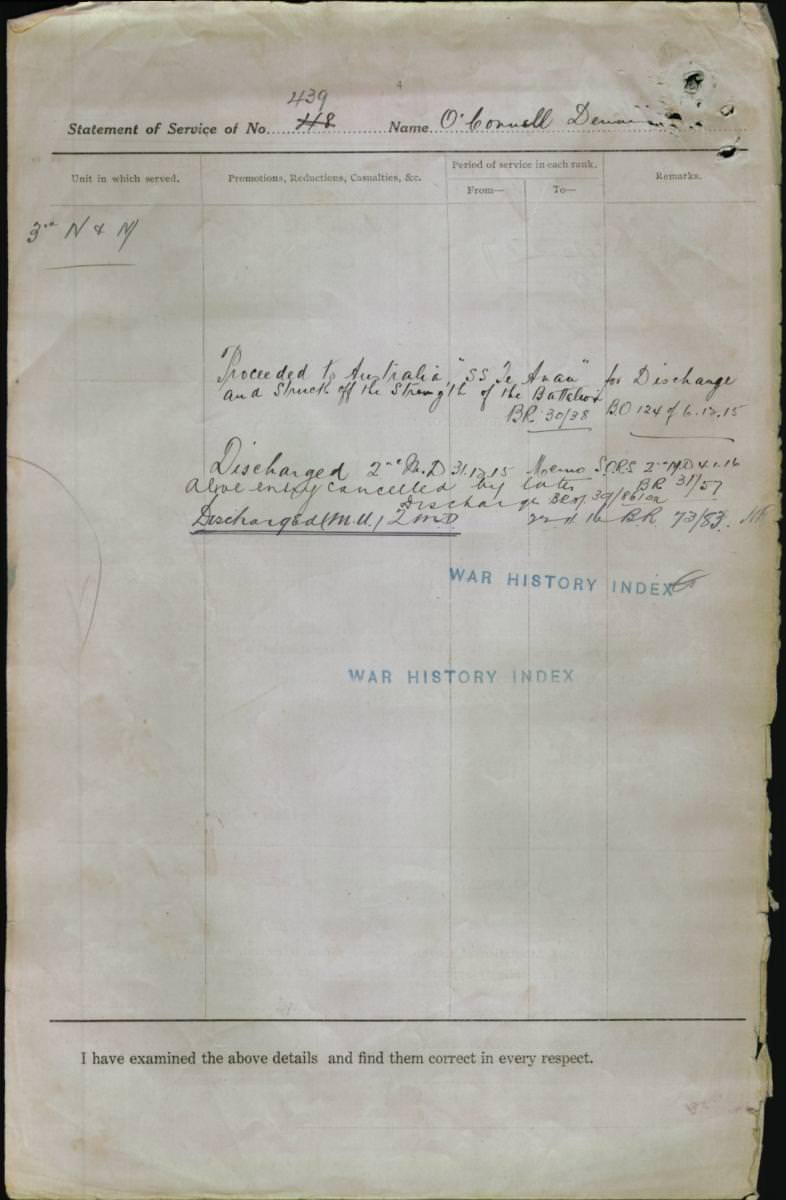 4
439
Statement of Service of No. 448 Name. O'Connell
Unit in which served. Promotions, Reductions, Casualties, &c. Period of service in each rank. Remarks.
From— To—
3rd N & M
Proceeded to Australia "SS Te Anau" for Discharge
and Struck off the Strength of the Battalion
BR 30/38 BO 124 of 6.12.15
Discharged 2nd M.D 31.12.15 Memo S.O.R.S 2nd M.D 4.1.16
above entry cancelled by later BR 31/57
Discharge
Discharged (M.U.) 2 M.D BR 73/83.
WAR HISTORY INDEX
WAR HISTORY INDEX
I have examined the above details and find them correct in every respect.